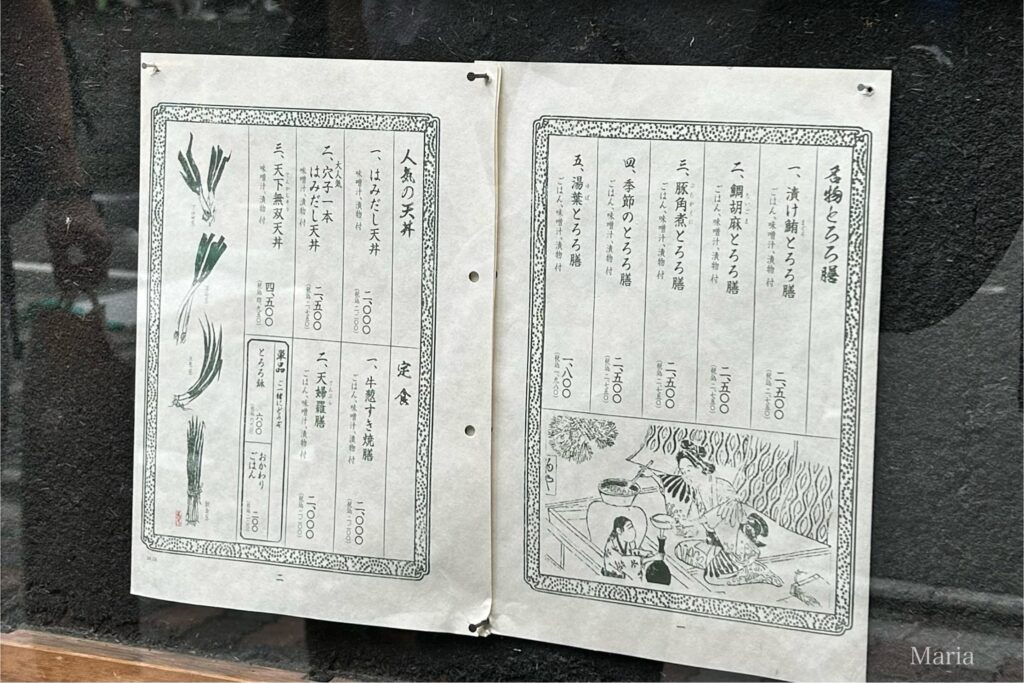 名物とろろ膳
一、漬け鮪とろろ膳
ごはん、味噌汁、漬物 付
二、五〇〇
(税込 二七五〇)
二、鯛胡麻とろろ膳
ごはん、味噌汁、漬物 付
二、五〇〇
(税込 二七五〇)
三、豚角煮とろろ膳
ごはん、味噌汁、漬物 付
二、五〇〇
(税込 二七五〇)
四、季節のとろろ膳
ごはん、味噌汁、漬物 付
二、五〇〇
(税込 二七五〇)
五、湯葉とろろ膳
ごはん、味噌汁、漬物 付
一、八〇〇
(税込 一九八〇)
一
人気の天丼
一、はみだし天丼
味噌汁、漬物 付
二、〇〇〇
(税込 二二〇〇)
大人気
二、穴子一本
はみだし天丼
味噌汁、漬物 付
二、五〇〇
(税込 二七五〇)
三、天下無双天丼
味噌汁、漬物 付
四、五〇〇
(税込 四、九五〇)
定食
一、牛葱すき焼膳
ごはん、味噌汁、漬物 付
二、〇〇〇
(税込 二二〇〇)
二、天婦羅膳
ごはん、味噌汁、漬物 付
二、〇〇〇
(税込 二二〇〇)
単品 ご一緒にどうぞ
とろろ鉢
六〇〇
おかわり
ごはん
二〇〇
二
Maria